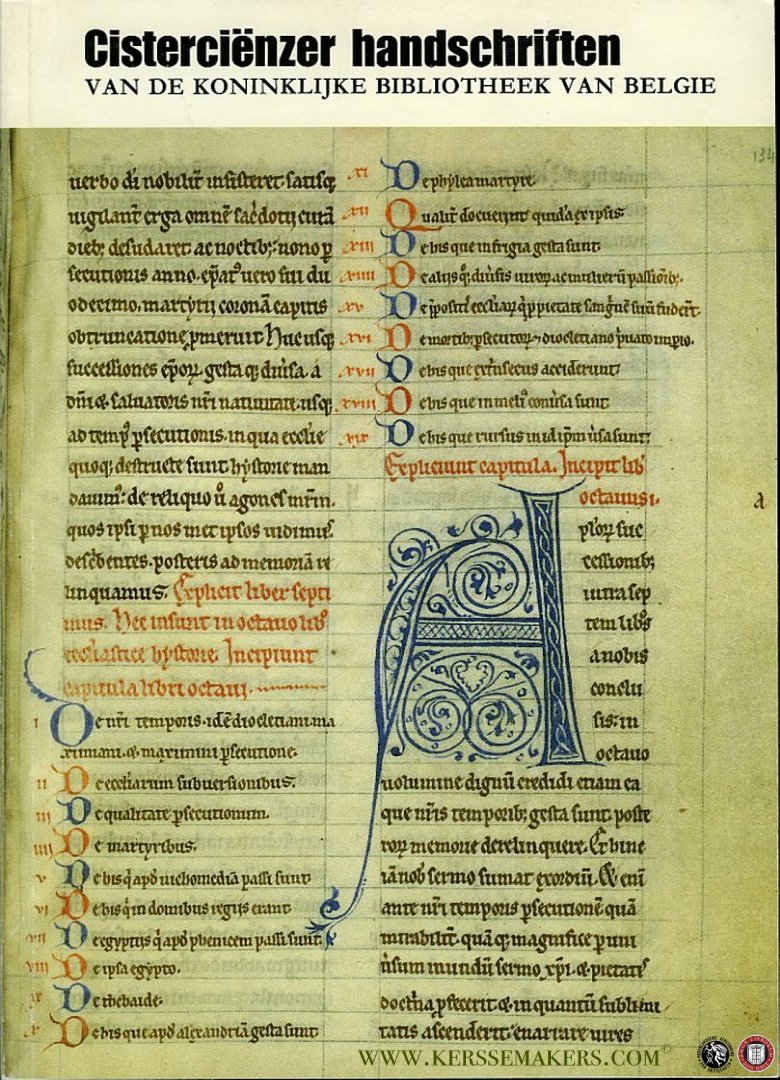 Cisterciënzer handschriften
VAN DE KONINKLIJKE BIBLIOTHEEK VAN BELGIE
134
uerbo di nobilit insisteret. satisq;
uigilant erga omnē sacdotij curā
dieb; desudaret ac noctib; nono p
secutionis anno. epat uero sui du
odecimo. martyrij coronā capitis
obtruncatione pmeruit Hucusq;
successiones epoꝝ. gesta q; diuisa. a
dni & saluatoris nri natiuitate. usq;
ad temp psecutionis. in qua ecclie
quoq; destructe sunt. hystorie man
dauim: de reliquo u agones mrm.
quos ipsi p nos met ipsos uidimus.
describentes. posteris ad memoriā re
linquamus. Explicit liber septi
mus. Hec insunt in octauo lib
ecclastice hystorie. Incipiunt
capitula libri octaui.
I De nri temporis. id ē diocletiani. ma
ximiani. & maximini psecutione.
II De eccliarum subuersionibus.
III De qualitate psecutionum.
IIII De martyribus.
V De his q apd nichomediā passi sunt
VI De his q in domibus regijs erant
VII De egyptijs q apd phenicem passi sunt.
VIII De ipsa egypto.
IX De thebaide.
X De his que apd alexandriā gesta sunt
XI De phylea martyre.
XII Qualit docuerint quida ex ipsis
XIII De his que in frigia gesta sunt
XIIII De alijs q; diuersis uiroꝝ ac mulierū passionib;.
XV De ppositis eccliaꝝ q p pietate sanguinē suū fuderunt.
XVI De mortib; psecutoꝝ. diocletiano priuato imperio.
XVII De his que extrinsecus acciderunt
XVIII De his que in meli conuersa sunt
XIX De his que rursus in idipm uersa sunt:
Expliciunt capitula. Incipit lib
octauus i.
Aploꝝ suc
cessionib;
intra sep
tem libs
a nobis
conclu
sis: in
octauo
a
uolumine dignū credidi etiam ea
que nris temporib; gesta sunt. poste
roꝝ memorie derelinquere. Et hinc
iā nob sermo sumat exordiū. & eni
ante nri temporis psecutionē quā
mirabilit. quā q; magnifice p uni
uersum mundū sermo xpi. & pietatis
doctrina pfecerit &. in quantū sublimi
tatis ascenderit. enarrare uires
WWW.KERSSEMAKERS.COM©